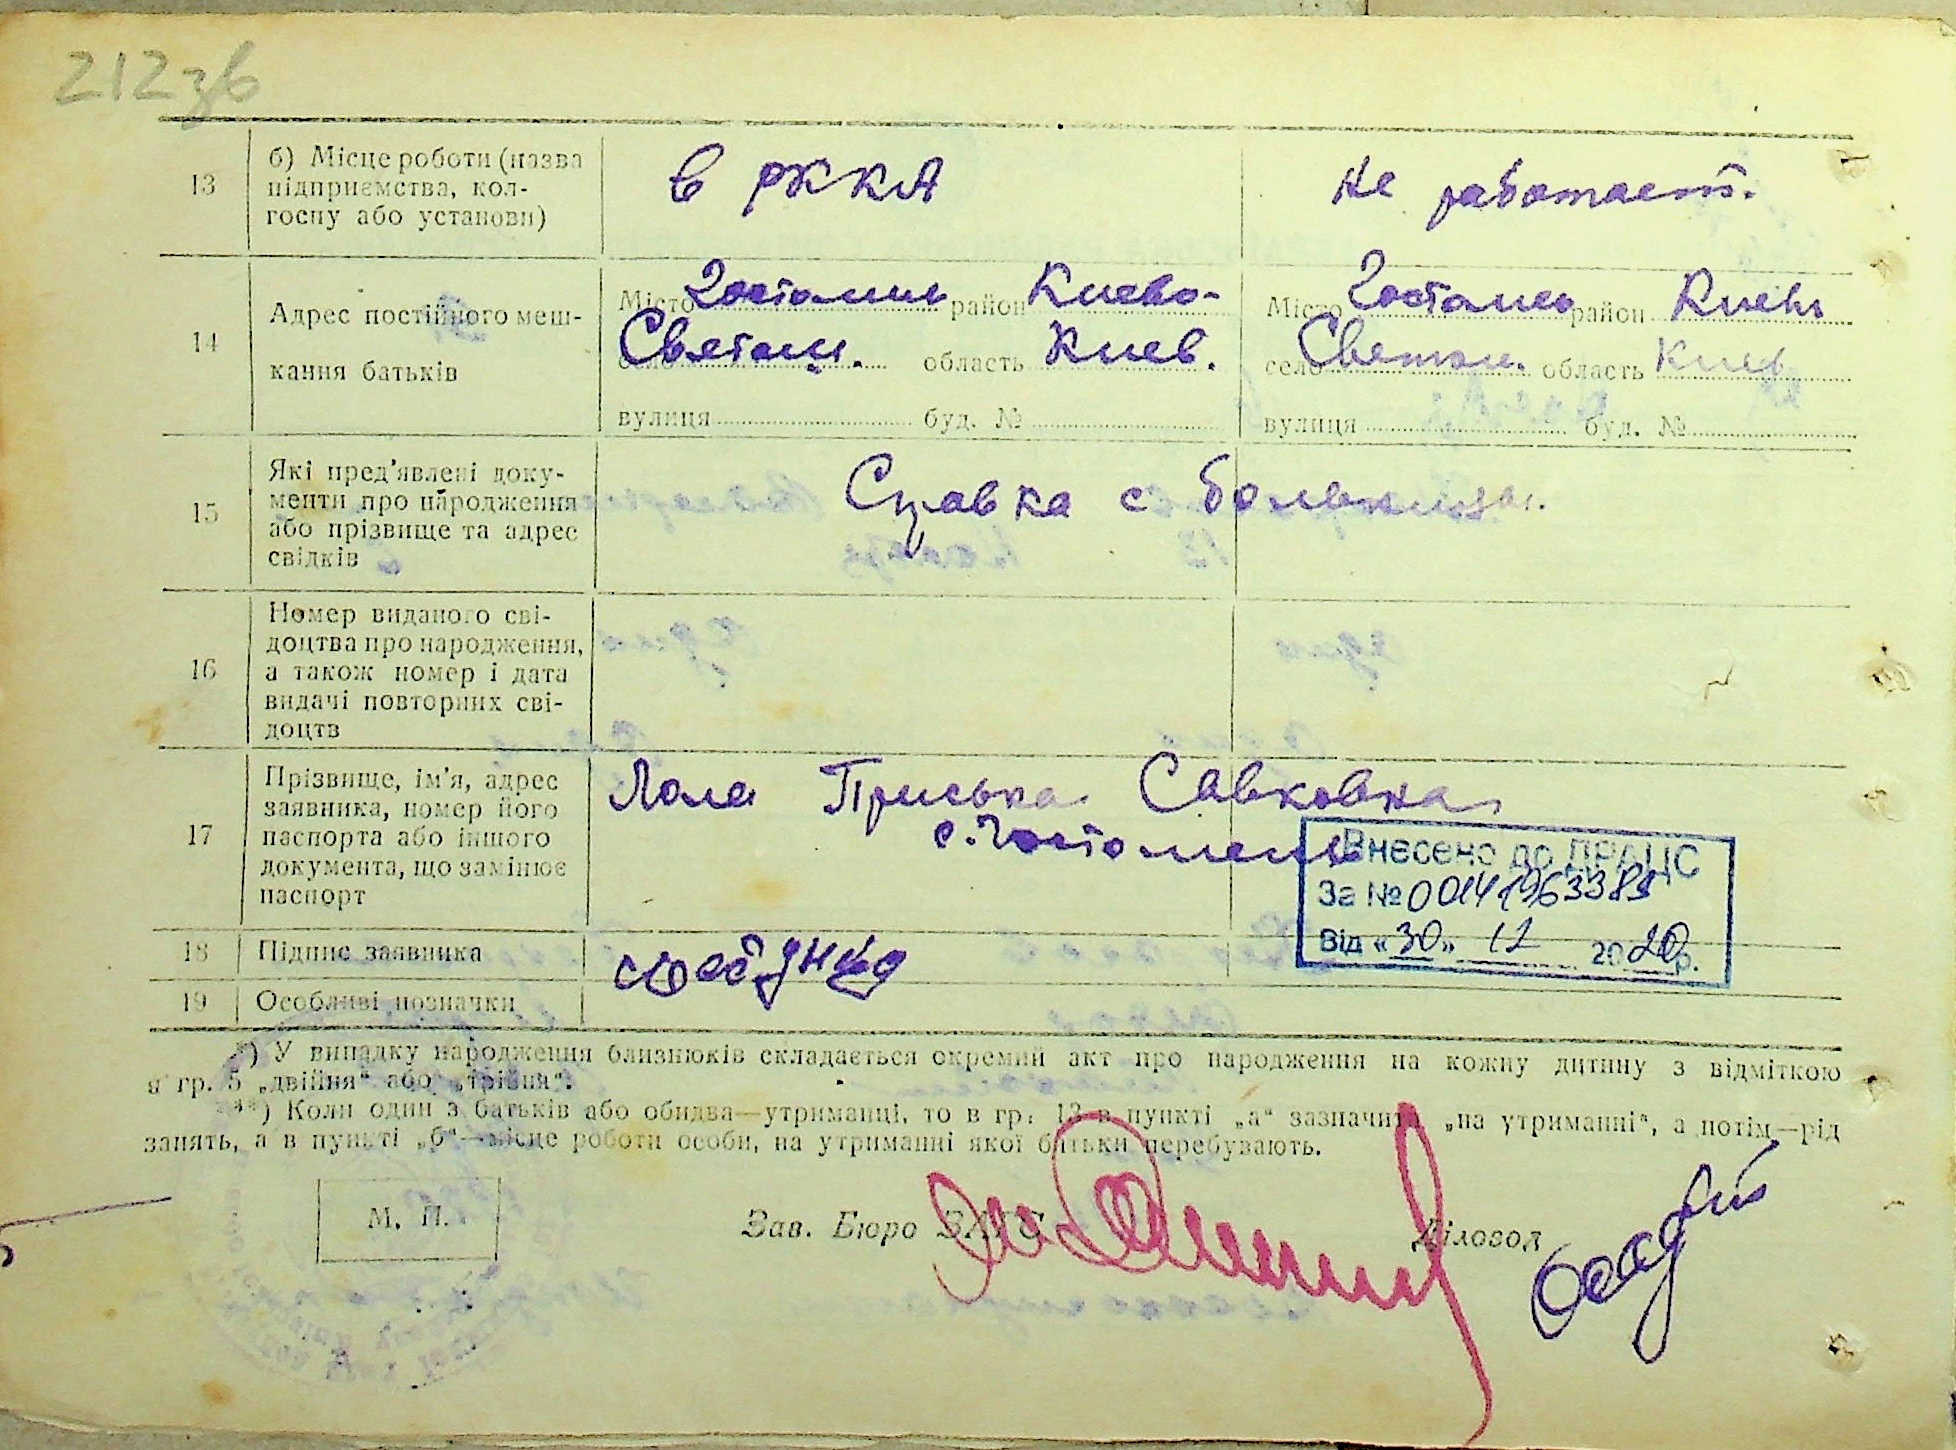 212зв
13
б) Місце роботи (назва
підприємства, кол-
госпу або установи)
в РККА
не работает.
14
Адрес постійного меш-
кання батьків
Місто Гостомель район Киево-
Святош. область Киев.
вулиця буд. №
Місто Гостомель район Киев
село Святош. область Киев
вулиця буд. №
15
Які пред'явлені доку-
менти про народження
або прізвище та адрес
свідків
Справка с больницы.
16
Номер виданого сві-
доцтва про народження,
а також номер і дата
видачі повторних сві-
доцтв
17
Прізвище, ім'я, адрес
заявника, номер його
паспорта або іншого
документа, що замінює
паспорт
Лола Приська Савковна
с. Гостомель
Внесено до ДРАЦС
За № 00141963383
Від «30» 12 2020р.
18
Підпис заявника
19
Особливі позначки
*) У випадку народження близнюків складається окремий акт про народження на кожну дитину з відміткою
в гр. 5 „двійня“ або „трійня“.
**) Коли один з батьків або обидва—утриманці, то в гр. 13 в пункті „а“ зазначити „на утриманні“, а потім—рід
занять, а в пункті „б“—місце роботи особи, на утриманні якої батьки перебувають.
М. П.
Зав. Бюро ЗАГС
Діловод